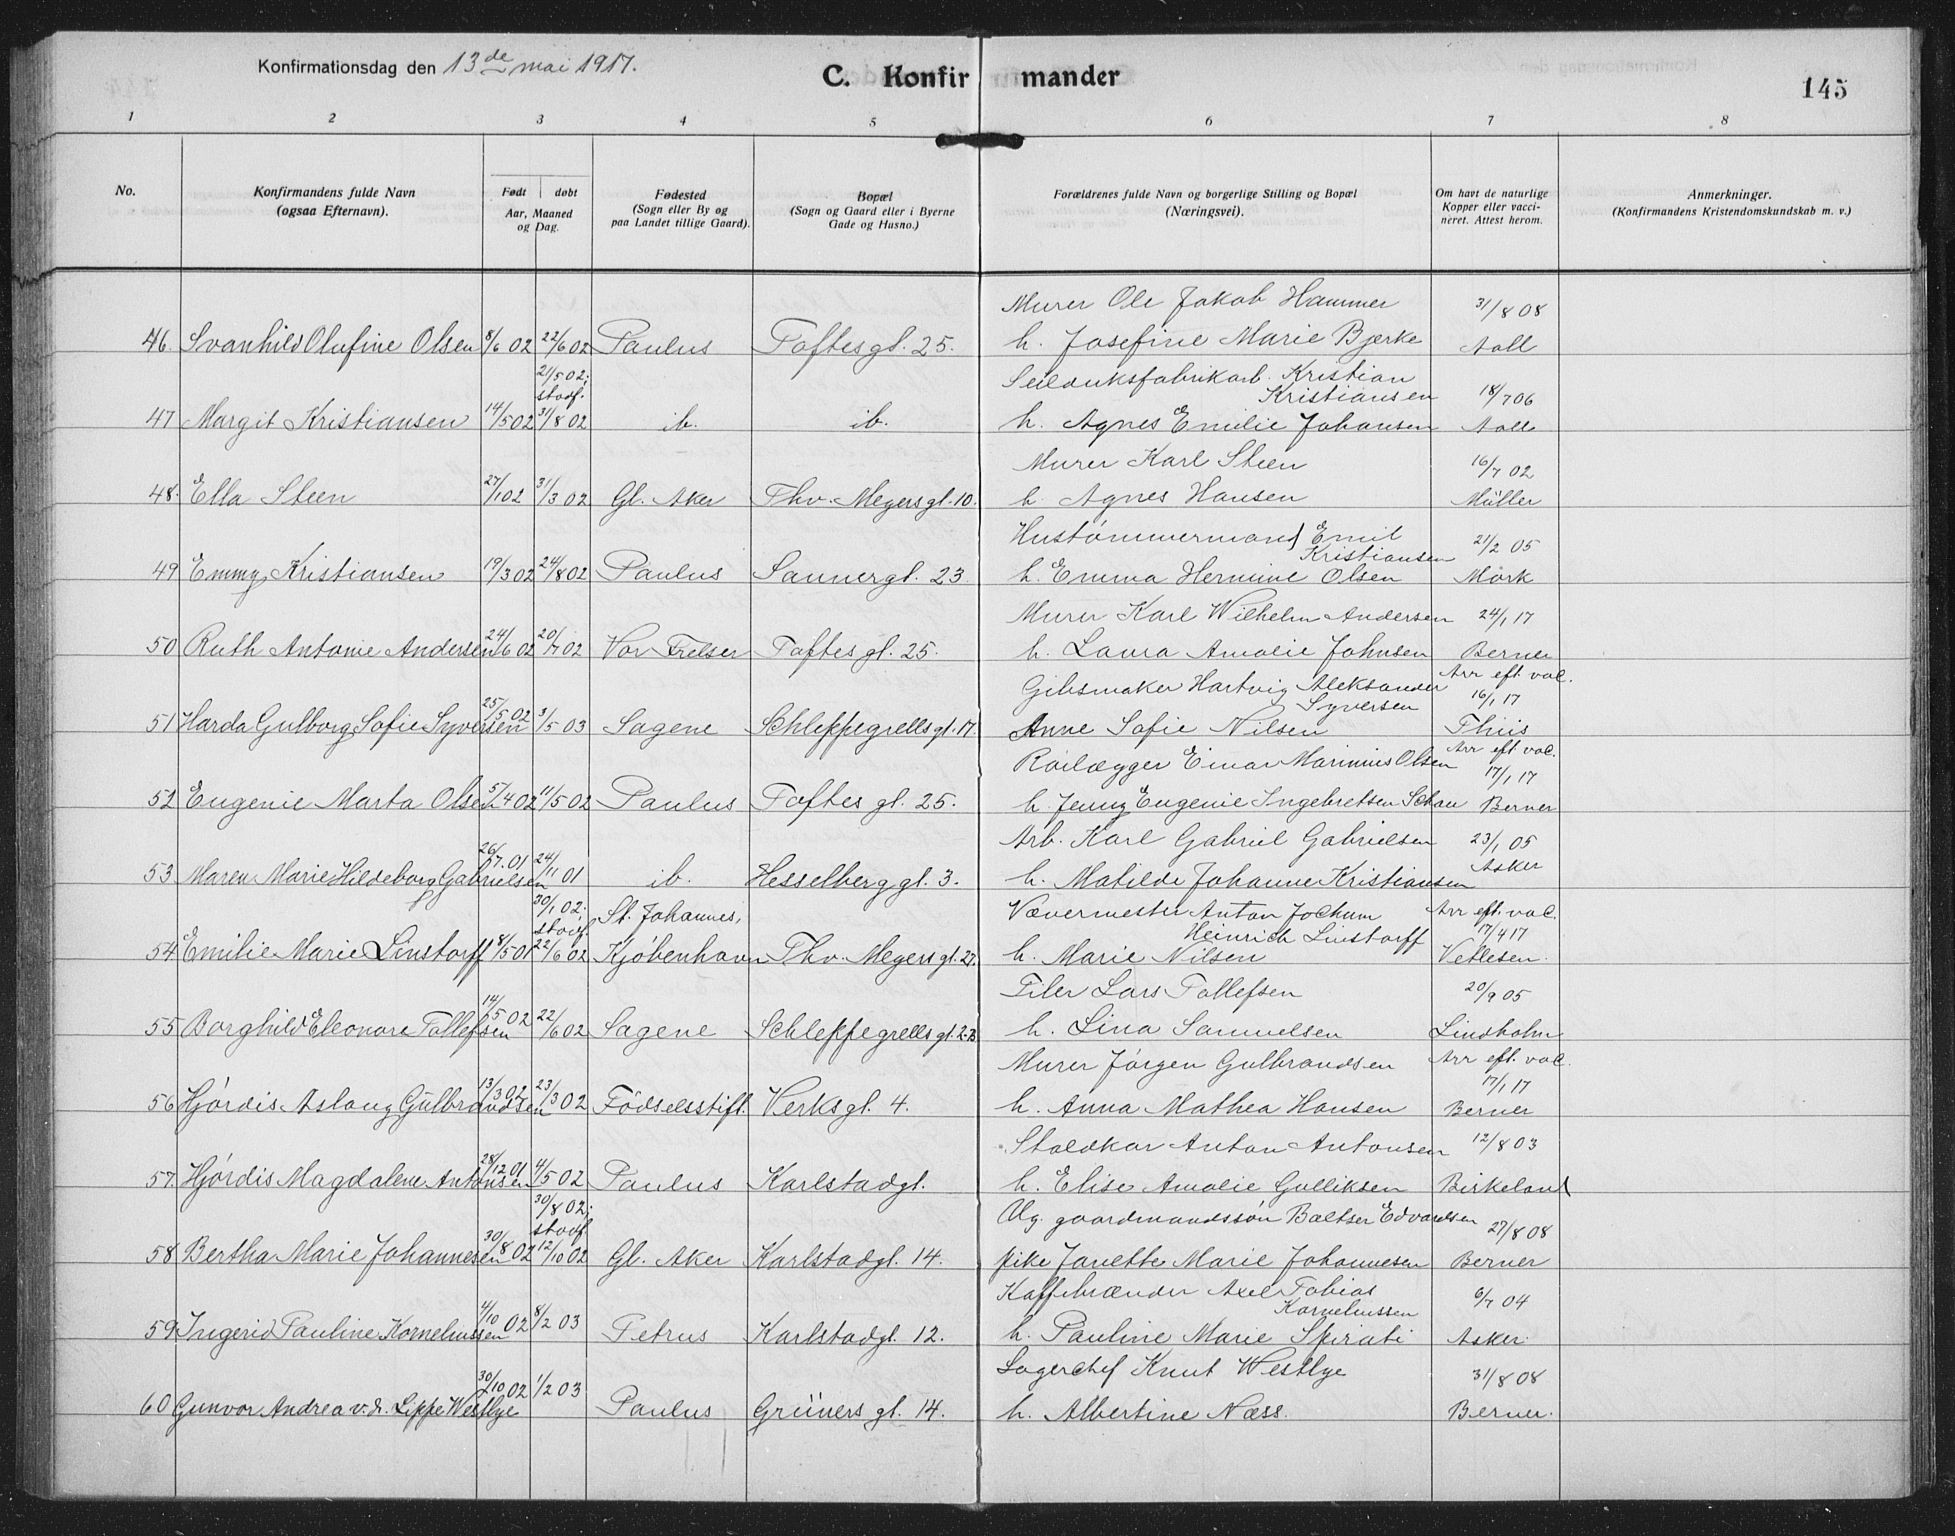 Konfirmationsdag den 13de mai 1917.
C. Konfirmander
145
1 2 3 4 5 6 7 8
No.
Konfirmandens fulde Navn
(ogsaa Efternavn).
Født døbt
Aar, Maaned
og Dag.
Fødested
(Sogn eller By og
paa Landet tillige Gaard).
Bopæl
(Sogn og Gaard eller i Byerne
Gade og Husno.)
Forældrenes fulde Navn og borgerlige Stilling og Bopæl
(Næringsvei).
Om havt de naturlige
Kopper eller vacci-
neret. Attest herom.
Anmerkninger.
(Konfirmandens Kristendomskundskab m. v.)
Murer Ole Jakob Hammer 31/8 08
46. Svanhild Olufine Olsen 8/6 02 22/6 02 Paulus Toftesgt. 25. h. Josefine Marie Bjerke Aall
21/5 02; stadf. Seilduksfabrikarb. Kristian
Kristiansen 18/7 06
47 Margit Kristiansen 14/5 02 31/8 02 ib. ib. h. Agnes Emilie Johansen Aall
Murer Karl Steen 16/7 02
48. Ella Steen 27/1 02 31/3 02 Gl. Aker Thv. Megersgt. 10. h. Agnes Hansen Müller
Hustømmermand Emil
Kristiansen 21/2 05
49 Emmy Kristiansen 19/3 02 24/8 02 Paulus Sannergt. 23 h. Emma Hermine Olsen Mørk
Murer Karl Wilhelm Andersen 24/1 17
50 Ruth Antonie Andersen 24/6 02 20/7 02 Vor Frelser Toftesgt. 25. h. Laura Amalie Johnsen Berner
Gibsmaker Hartvig Aleksander Arr eft vac.
Syversen 16/1 17
51 Harda Gulborg Sofie Syversen 25/5 02 3/5 03 Sagene Schleppegrellsgt. 17. Anne Sofie Nilsen Thiis
Rørlægger Einar Marinius Olsen Arr eft vac. 17/1 17
52 Eugenie Marta Olsen 5/4 02 11/5 02 Paulus Toftes gt. 25. h. Jenny Eugenie Ingebretsen Schau Berner
Arb. Karl Gabriel Gabrielsen 23/1 05
53 Maren Marie Hildeborg Gabrielsen 26/7 01 24/11 01 ib. Hesselberg gt. 3. h. Matilde Johanne Kristiansen Asker
30/1 02; stadf. St. Johannes, Vævermester Anton Jochum Arr eft. vac.
Heinrich Linstorff 17/4 17
54 Emilie Marie Linstorff 8/5 01 22/6 02 Kjøbenhavn Thv. Megersgt. 27. h. Marie Nilsen Vetlesen.
Filer Lars Tollefsen 20/9 05
55 Borghild Eleonore Tollefsen 14/5 02 22/6 02 Sagene Schleppegrellsgt. 23 h. Lina Samuelsen Lindholm
Murer Jørgen Gulbrandsen Arr eft. vac. 17/1 17
56 Hjørdis Aslaug Gulbrandsen 13/3 02 23/3 02 Fødselsstift. Verksgt. 4. h. Anna Mathea Hansen Berner
Staldkar Anton Antonsen 12/8 03
57. Hjørdis Magdalene Antonsen 28/12 01 4/5 02 Paulus Karlstadgt. h. Elise Amalie Gulliksen Birkeland
30/8 02; stadf Ug. gaardmandssøn Baltser Edvardsen 27/8 08
58 Bertha Marie Johannesen 30/8 02 12/10 02 Gl. Aker Karlstadgt. 14. pike Janette Marie Johannesen Berner
Kaffebrænder Axel Tobias
Korneliussen 6/7 04
59 Ingerid Pauline Korneliussen 4/10 02 8/2 03 Petrus Karlstadgt. 12. h. Pauline Marie Spirati Asker.
Lagerchef Knut Westlye 31/8 08
60 Gunvor Andrea v. d. Lippe Westlye 30/10 02 1/2 03 Paulus Grüners gt. 14. h. Albertine Næss. Berner.